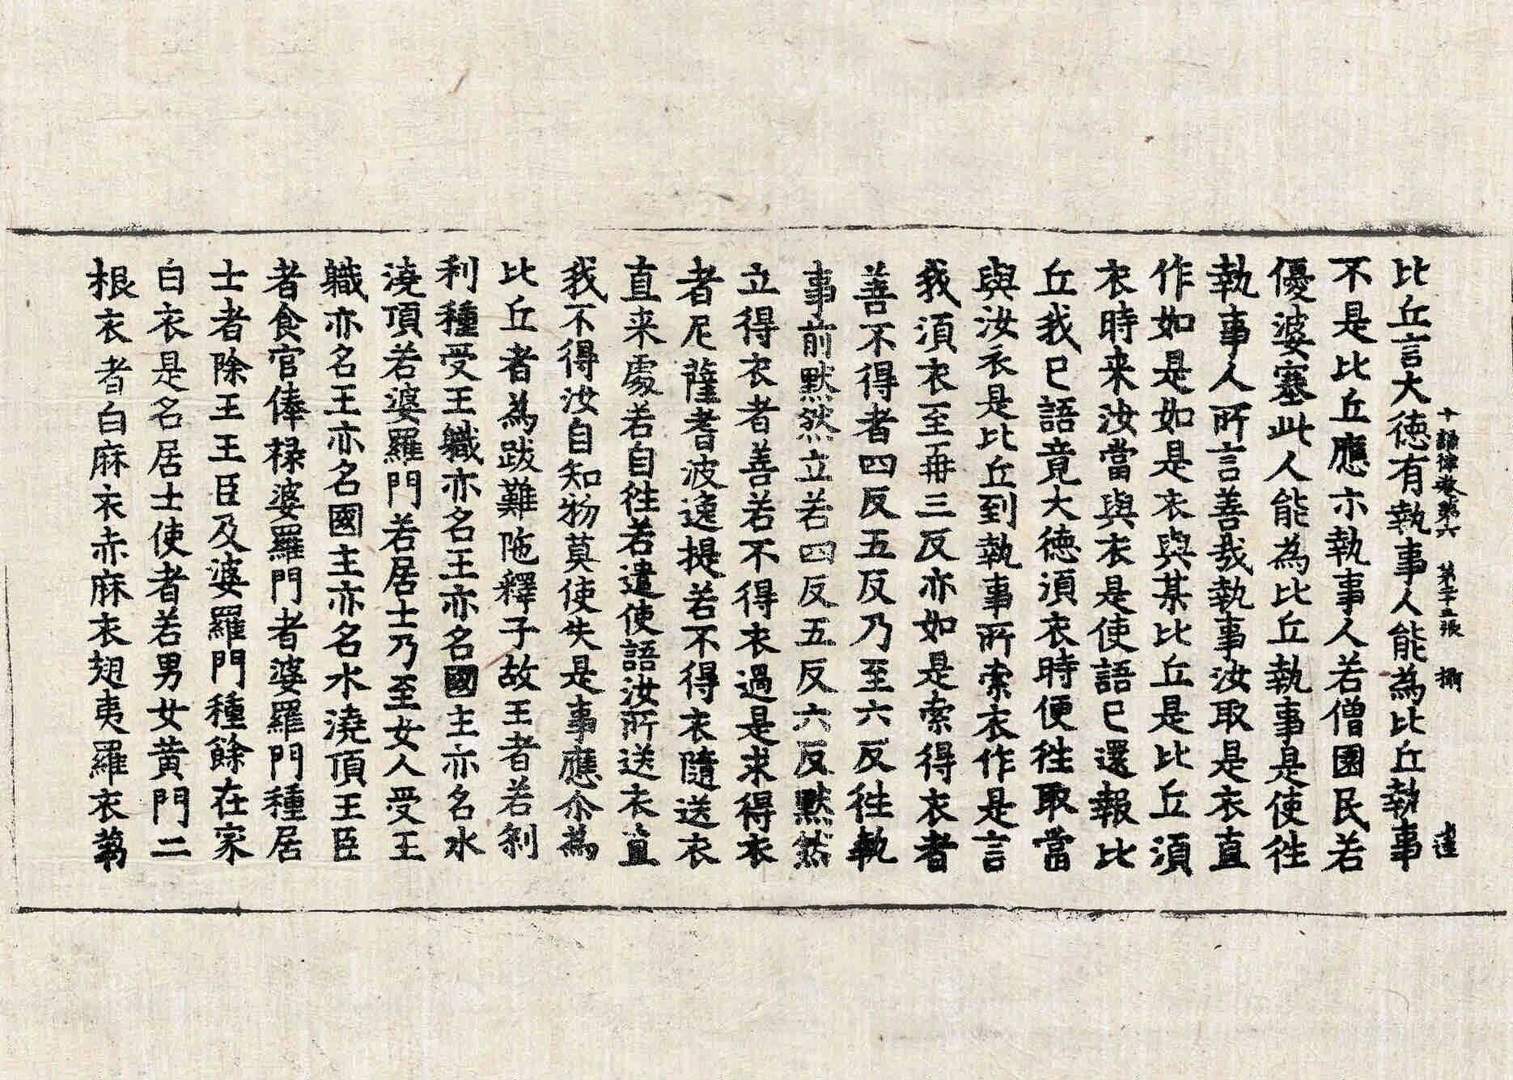 十誦律卷第六　第十三張　攡
比丘言大徳有執事人能為比丘執事
不是比丘應示執事人若僧園民若
優婆塞此人能為比丘執事是使徃
執事人所言善哉執事汝取是衣直
作如是如是衣與某比丘是比丘須
衣時来汝當與衣是使語已還報比
丘我已語竟大徳須衣時便徃取當
與汝衣是比丘到執事所索衣作是言
我須衣至再三反亦如是索得衣者
善不得者四反五反乃至六反徃執
事前黙然立若四反五反六反黙然
立得衣者善若不得衣過是求得衣
者尼薩耆波逸提若不得衣隨送衣
直来處若自徃若遣使語汝所送衣直
我不得汝自知物莫使失是事應尒為
比丘者為跋難陁釋子故王者若刹
利種受王軄亦名王亦名國主亦名水
澆頂若婆羅門若居士乃至女人受王
軄亦名王亦名國主亦名水澆頂王臣
者食官俸禄婆羅門者婆羅門種居
士者除王王臣及婆羅門種餘在家
白衣是名居士使者若男女黄門二
根衣者白麻衣赤麻衣翅夷羅衣蒭